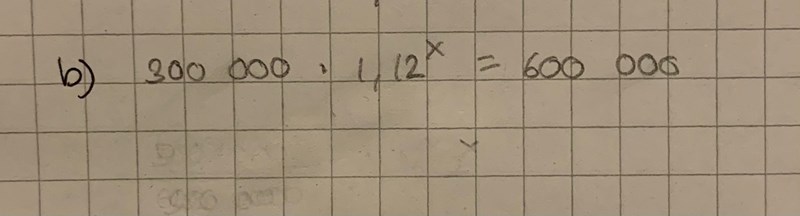 b) 300 000 · 1,12^x = 600 000